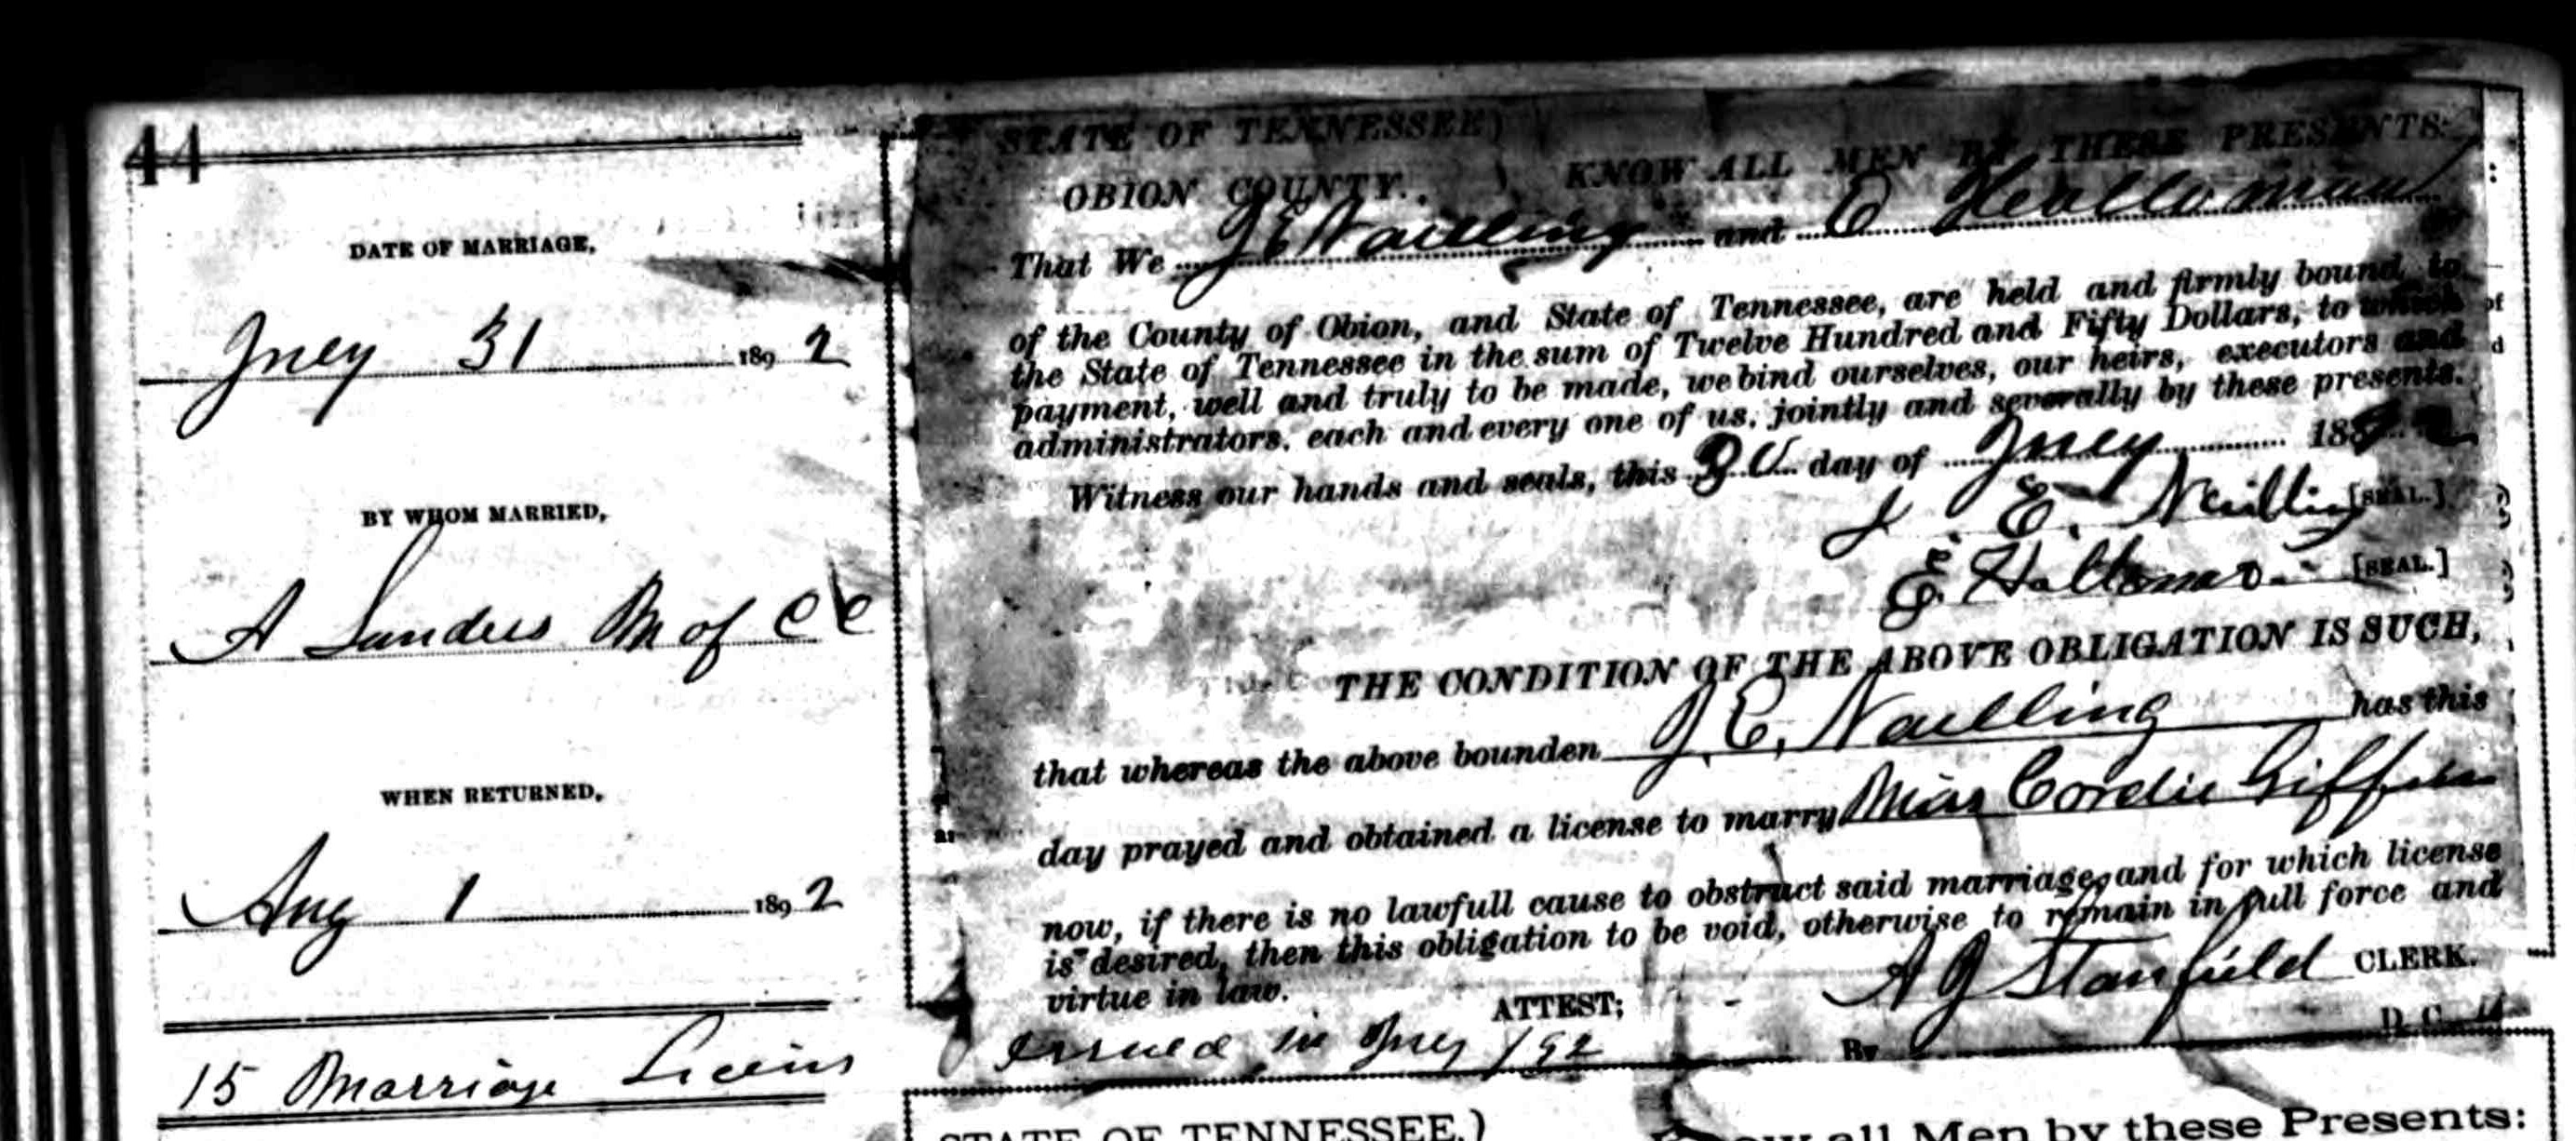 44
DATE OF MARRIAGE,
July 31 1892
BY WHOM MARRIED,
A Sanders M of C C
WHEN RETURNED,
Aug 1 1892
15 Marriage Licens
STATE OF TENNESSEE)
OBION COUNTY. ) KNOW ALL MEN BY THESE PRESENTS:
That We J E Nailling and E Holloman
of the County of Obion, and State of Tennessee, are held and firmly bound to
the State of Tennessee in the sum of Twelve Hundred and Fifty Dollars, to which
payment, well and truly to be made, we bind ourselves, our heirs, executors and
administrators, each and every one of us, jointly and severally by these presents.
Witness our hands and seals, this 30 day of July 1892
J. E. Nailling [SEAL.]
E. Holloman [SEAL.]
THE CONDITION OF THE ABOVE OBLIGATION IS SUCH,
that whereas the above bounden J. E. Nailling has this
day prayed and obtained a license to marry Miss Cordie
now, if there is no lawfull cause to obstruct said marriage, and for which license
is desired, then this obligation to be void, otherwise to remain in full force and
virtue in law.
ATTEST; A J Stanfield CLERK.
Issued in July 192 By D. C.
STATE OF TENNESSEE,) Know all Men by these Presents: